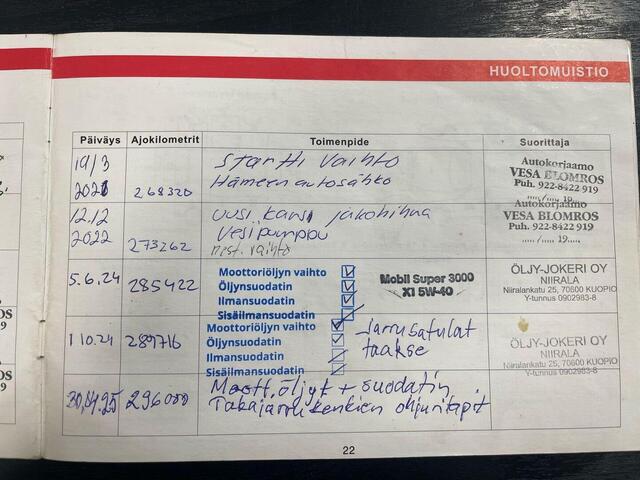 HUOLTOMUISTIO
Päiväys Ajokilometrit Toimenpide Suorittaja
19/3 Startti vaihto Autokorjaamo
VESA BLOMROS
2021 268320 Hämeen autosähko Puh. 922-8422 919
...../.....19.....
12.12 uusi kansi jakohihna Autokorjaamo
VESA BLOMROS
2022 273262 Vesipumppu Puh. 922-8422 919
nest. vaihto ...../.....19.....
5.6.24 285422 Moottoriöljyn vaihto Mobil Super 3000 ÖLJY-JOKERI OY
Öljynsuodatin X1 5W-40 NIIRALA
Ilmansuodatin Niiralankatu 25, 70600 KUOPIO
Sisäilmansuodatin Y-tunnus 0902983-8
1 10.24 289716 Moottoriöljyn vaihto Jarrusatulat ÖLJY-JOKERI OY
Öljynsuodatin taakse NIIRALA
Ilmansuodatin Niiralankatu 25, 70600 KUOPIO
Sisäilmansuodatin Y-tunnus 0902983-8
30,04.25 296000 Moott, öljyt + suodatin
Takajarrukenkien ohjuritapit
22